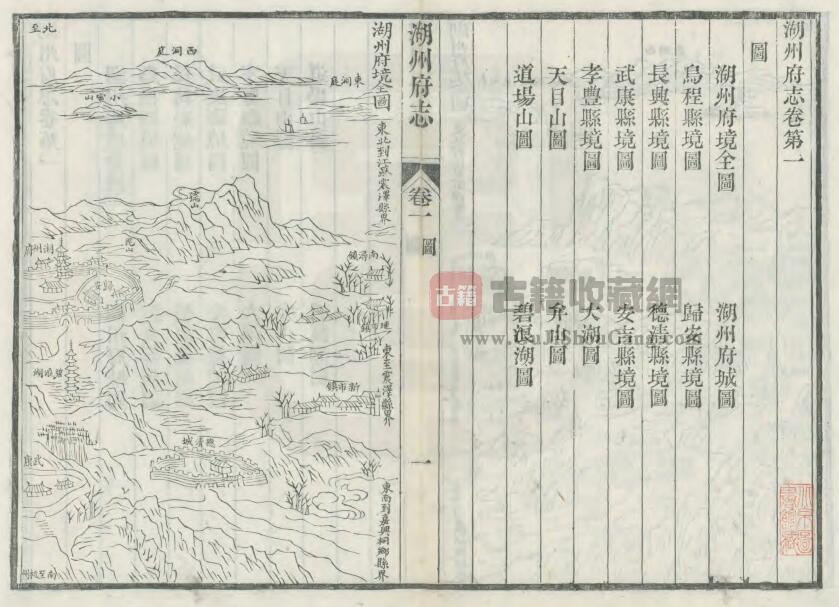 湖州府志卷第一
圖
湖州府境全圖
湖州府城圖
烏程縣境圖
歸安縣境圖
長興縣境圖
德清縣境圖
武康縣境圖
安吉縣境圖
孝豐縣境圖
太湖圖
天目山圖
弁山圖
道場山圖
碧浪湖圖
湖州府志
卷一
圖
一
湖州府境全圖
東北到江蘇震澤縣界
東至震澤縣界
東南到嘉興桐鄉縣界
北至
西洞庭
東洞庭
小雷山
湖州府
歸安
南潯鎮
新市鎮
碧浪湖
德清城
武康
古籍
古籍收藏網
www.GuJiShouCang.com